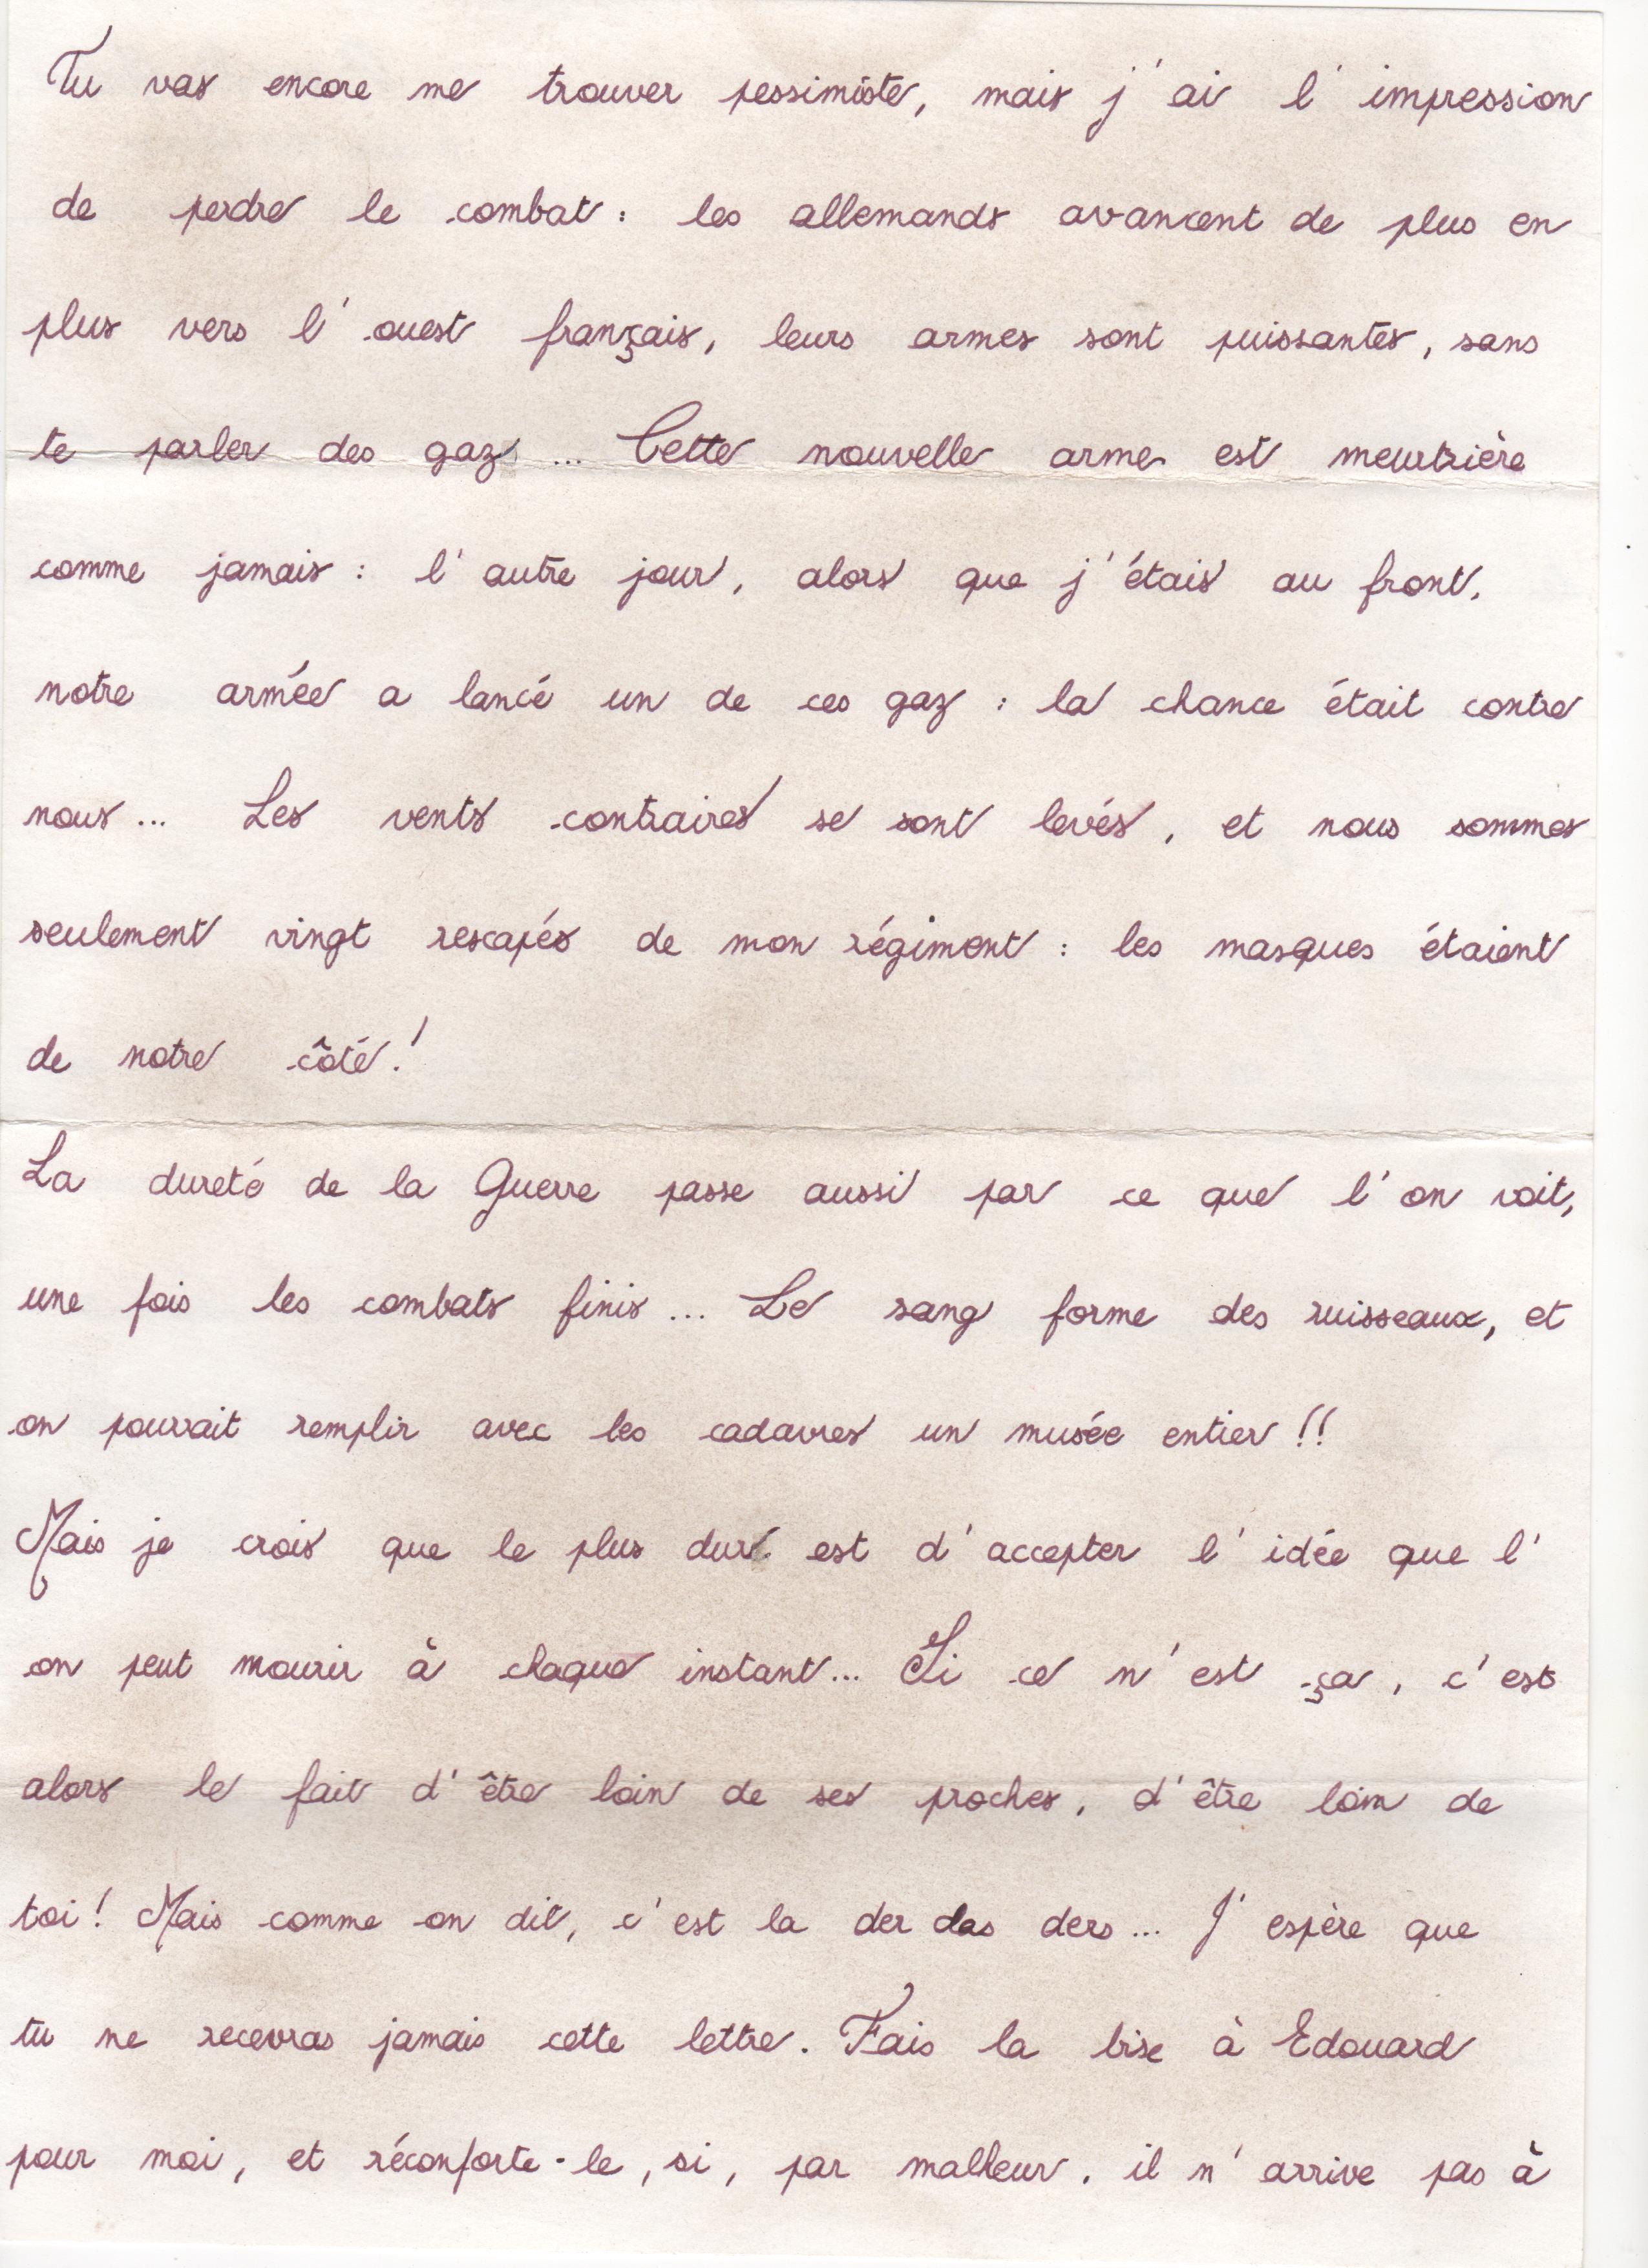 Tu vas encore me trouver pessimiste, mais j'ai l'impression
de perdre le combat : les allemands avancent de plus en
plus vers l'ouest français, leurs armes sont puissantes, sans
te parler des gaz ... Cette nouvelle arme est meurtrière
comme jamais : l'autre jour, alors que j'étais au front,
notre armée a lancé un de ces gaz : la chance était contre
nous ... Les vents contraires se sont levés, et nous sommes
seulement vingt rescapés de mon régiment : les masques étaient
de notre côté !
La dureté de la Guerre passe aussi par ce que l'on voit,
une fois les combats finis ... Le sang forme des ruisseaux, et
on pourrait remplir avec les cadavres un musée entier !!
Mais je crois que le plus dur est d'accepter l'idée que l'
on peut mourir à chaque instant ... Si ce n'est ça, c'est
alors le fait d'être loin de ses proches, d'être loin de
toi ! Mais comme on dit, c'est la der des ders ... J'espère que
tu ne recevras jamais cette lettre. Fais la bise à Edouard
pour moi, et réconforte-le, si, par malheur, il n'arrive pas à